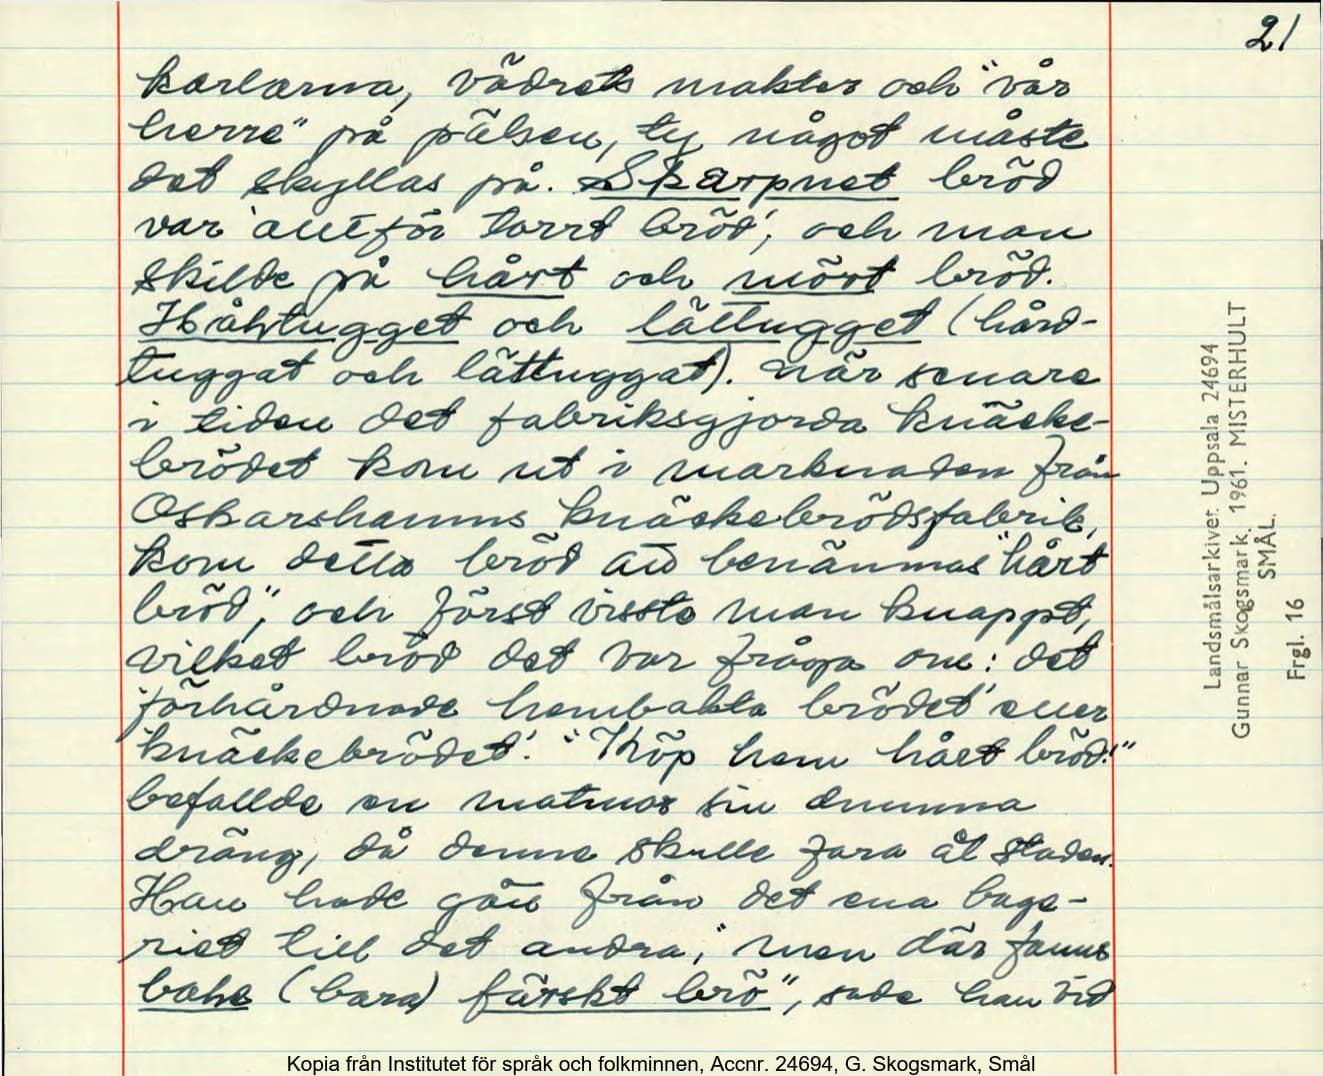 21
karlarna, vädrets makter och "vår
herre" på pälsen, ty något måste
det skyllas på. Skarpnet bröd
var 'alltför torrt bröd', och man
skilde på hårt och mört bröd.
Håhtugget och lättugget (hård-
tuggat och lättuggat). När senare
i tiden det fabriksgjorda knäcke-
brödet kom ut i marknaden från
Oskarshamns knäckebrödsfabrik,
kom detta bröd att benämnas "hårt
bröd", och först visste man knappt,
vilket bröd det var fråga om: det
'förhårdnade hembakta brödet' eller
'knäckebrödet'. "Köp hem hårt bröd!"
befallde en matmor sin dumma
dräng, då denne skulle fara åt staden.
Han hade gått från det ena bage-
riet till det andra, "men där fanns
bahe (bara) färskt brö", sade han vid
Landsmålsarkivet Uppsala 24694
Gunnar Skogsmark. 1961. MISTERHULT
SMÅL.
Frgl. 16
Kopia från Institutet för språk och folkminnen, Accnr. 24694, G. Skogsmark, Smål